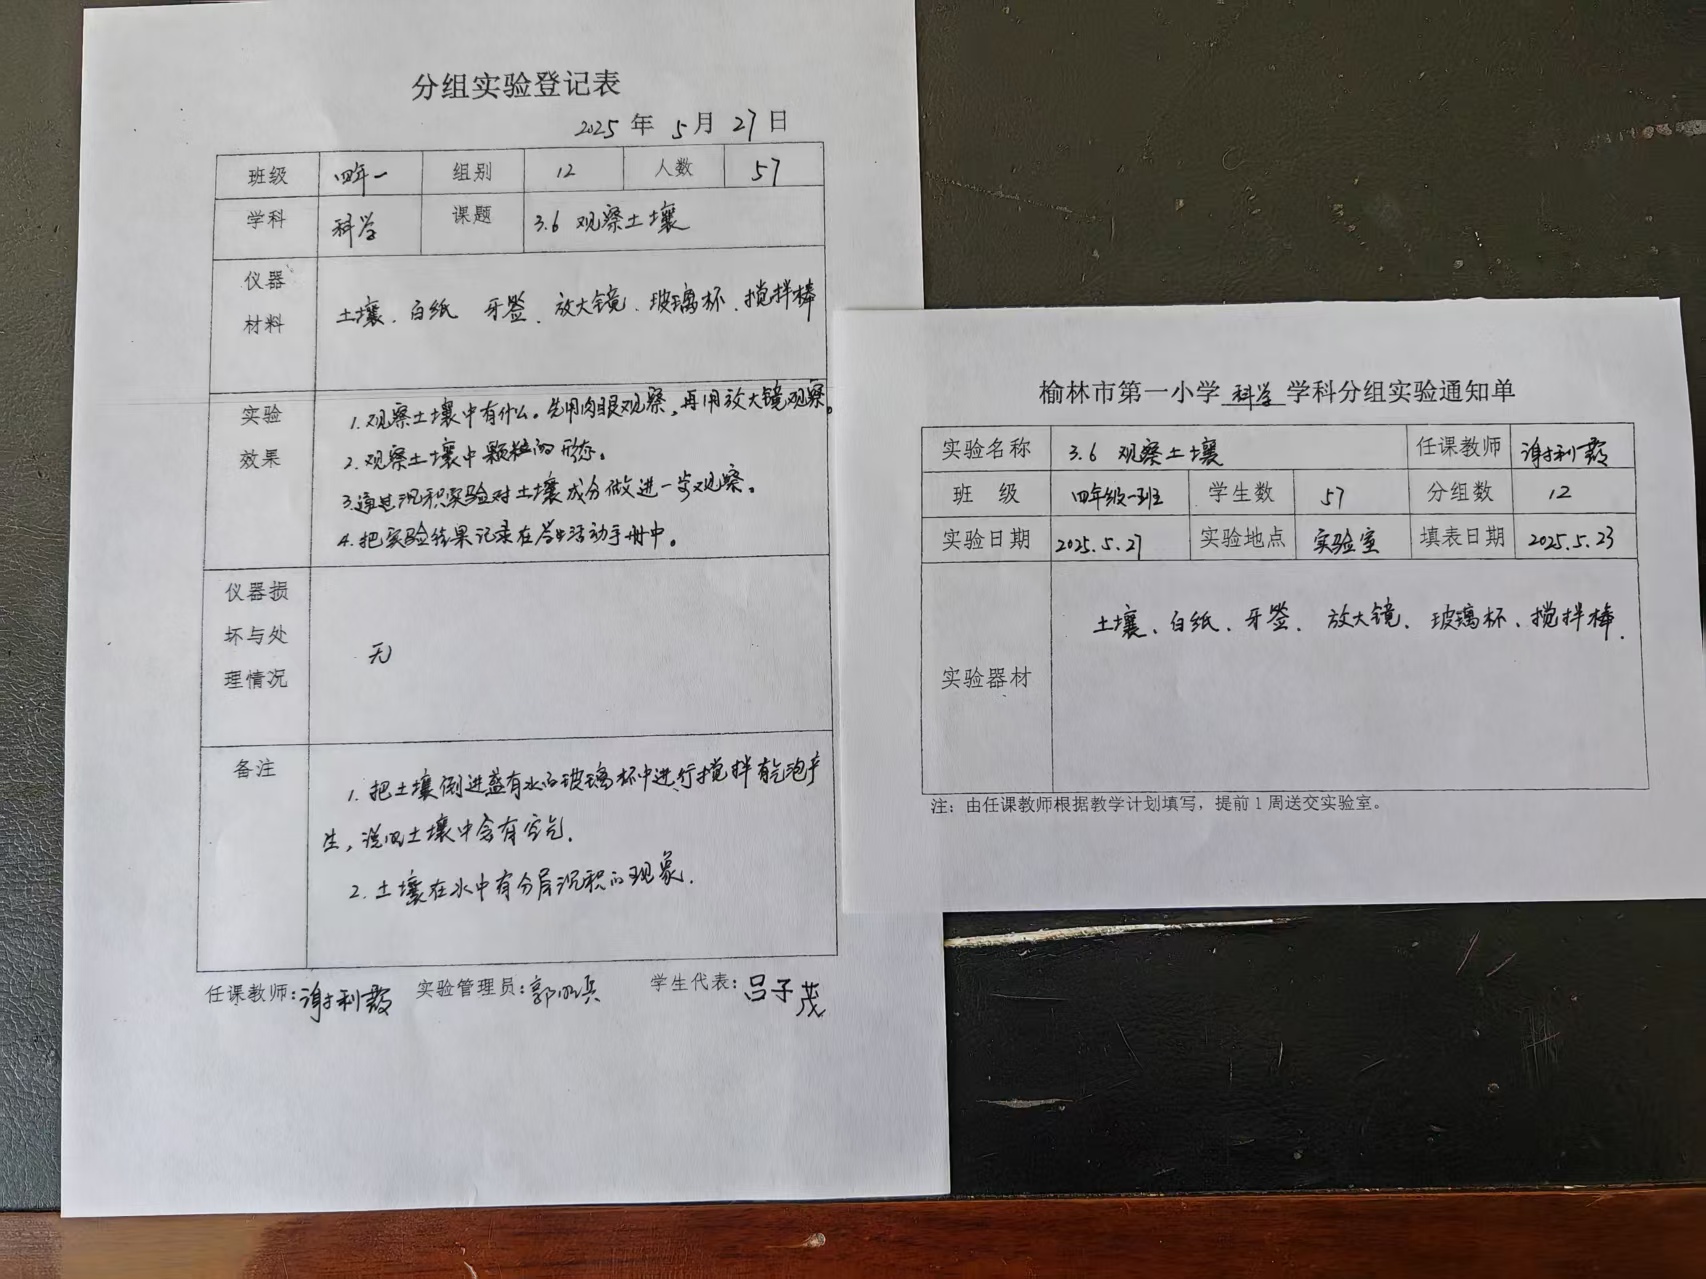 分组实验登记表
2025 年 5 月 27 日
班级 四年一 组别 12 人数 57
学科 科学 课题 3.6 观察土壤
仪器
材料
土壤、白纸 牙签、放大镜、玻璃杯、搅拌棒
实验
效果
1.观察土壤中有什么。先用肉眼观察,再用放大镜观察。
2.观察土壤中颗粒的形态。
3.通过沉积实验对土壤成分做进一步观察。
4.把实验结果记录在学生活动手册中。
仪器损
坏与处
理情况
无
备注
1.把土壤倒进盛有水的玻璃杯中进行搅拌有气泡产
生,说明土壤中含有空气.
2.土壤在水中有分层沉积的现象.
任课教师:谢利霞 实验管理员:郭 兵 学生代表:吕子茂
榆林市第一小学 科学 学科分组实验通知单
实验名称 3.6 观察土壤 任课教师 谢利霞
班 级 四年级一班 学生数 57 分组数 12
实验日期 2025.5.27 实验地点 实验室 填表日期 2025.5.23
实验器材
土壤、白纸、牙签、放大镜、玻璃杯、搅拌棒.
注:由任课教师根据教学计划填写,提前1周送交实验室。